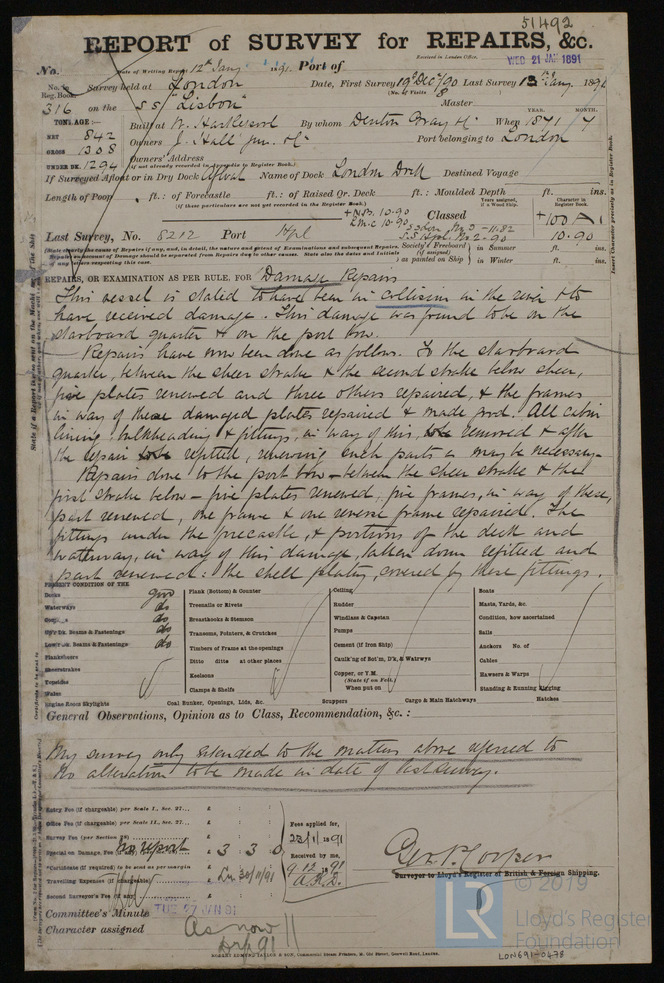 51492
REPORT of SURVEY for REPAIRS, &c.
Received in London Office, WED 21 JAN 1891
No. Date of Writing Report 12th Jany 1891 Port of
No. in Survey held at London Date, First Survey 19 Dec/90 Last Survey 13th Jany 1891
Reg. Book. (No. of Visits 8
316 on the SS "Lisbon" Master
TONNAGE:— YEAR. MONTH.
NET 842 Built at W. Hartlepool By whom Denton Gray & Co When 1871 7
GROSS 1308 Owners J. Hall Jun. & Co Port belonging to London
UNDER DK. 1294 Owners' Address
(if not already recorded in Appendix to Register Book.)
If Surveyed Afloat or in Dry Dock Afloat Name of Dock London Dock Destined Voyage
Length of Poop ft.: of Forecastle ft.: of Raised Qr. Deck ft.: Moulded Depth ft. ins.
(If these particulars are not yet recorded in the Register Book.)
Classed +100A1
Last Survey, No. 8212 Port Hpl 10.90
Society's Freeboard in Summer ft. ins.
as painted on Ship in Winter ft. ins.
REPAIRS, OR EXAMINATION AS PER RULE, FOR Damage Repairs
This vessel is stated to have been in collision in the river & to
have received damage. This damage was found to be on the
starboard quarter & on the port bow.
Repairs have now been done as follows. To the starboard
quarter, between the sheer strake & the second strake below sheer,
five plates renewed and three others repaired, & the frames
in way of these damaged plates repaired & made good. All cabin
lining, bulkheading & fittings, in way of this, removed & after
the repair refitted, renewing such parts as may be necessary.
Repairs done to the port bow – between the sheer strake & the
first strake below – five plates renewed, five frames, in way of these,
part renewed, one frame & one reverse frame repaired. The
fittings under the forecastle, & portions of the deck and
waterway, in way of this damage, taken down refitted and
part renewed: the shell plating, covered by these fittings.
PRESENT CONDITION OF THE
Decks good
Waterways do
do
Upr Dk. Beams & Fastenings do
Lower Dk. Beams & Fastenings do
Plankshears
Sheerstrakes
Topsides
Wales
Engine Room Skylights
Plank (Bottom) & Counter
Treenails or Rivets
Breasthooks & Stemson
Transoms, Pointers, & Crutches
Timbers of Frame at the openings
Ditto ditto at other places
Keelsons
Clamps & Shelfs
Coal Bunker, Openings, Lids, &c.
Ceiling
Rudder
Windlass & Capstan
Pumps
Cement (if Iron Ship)
Caulk'ng of Bot'm, D'k, & Watrwys
Copper, or Y.M.
(State if on Felt.)
When put on
Scuppers
Cargo & Main Hatchways
Boats
Masts, Yards, &c.
Condition, how ascertained
Sails
Anchors No. of
Cables
Hawsers & Warps
Standing & Running Rigging
Hatches
General Observations, Opinion as to Class, Recommendation, &c.:
My survey only extended to the matters above referred to
No alteration to be made in date of last survey.
Entry Fee (if chargeable) per Scale I., Sec. 27... £ : :
Office Fee (if chargeable) per Scale II., Sec. 27... £ : :
Survey Fee (per Section 28) £ : :
Special or Damage Fee £ 3 : 3 : 0
no report
*Certificate (if required) to be sent as per margin
Travelling Expenses (if chargeable) £
Second Surveyor's Fee (if any) £ : :
Fees applied for,
1891
Received by me,
Geo. P. Cooper
Surveyor to Lloyd's Register of British & Foreign Shipping.
Committee's Minute TUE 27 JAN 91
Character assigned As now
© 2019
LR
Lloyd's Register
Foundation
ROBERT EDMUND TAYLOR & SON, Commercial Steam Printers, 19, Old Street, Goswell Road, London.
LON691-0478